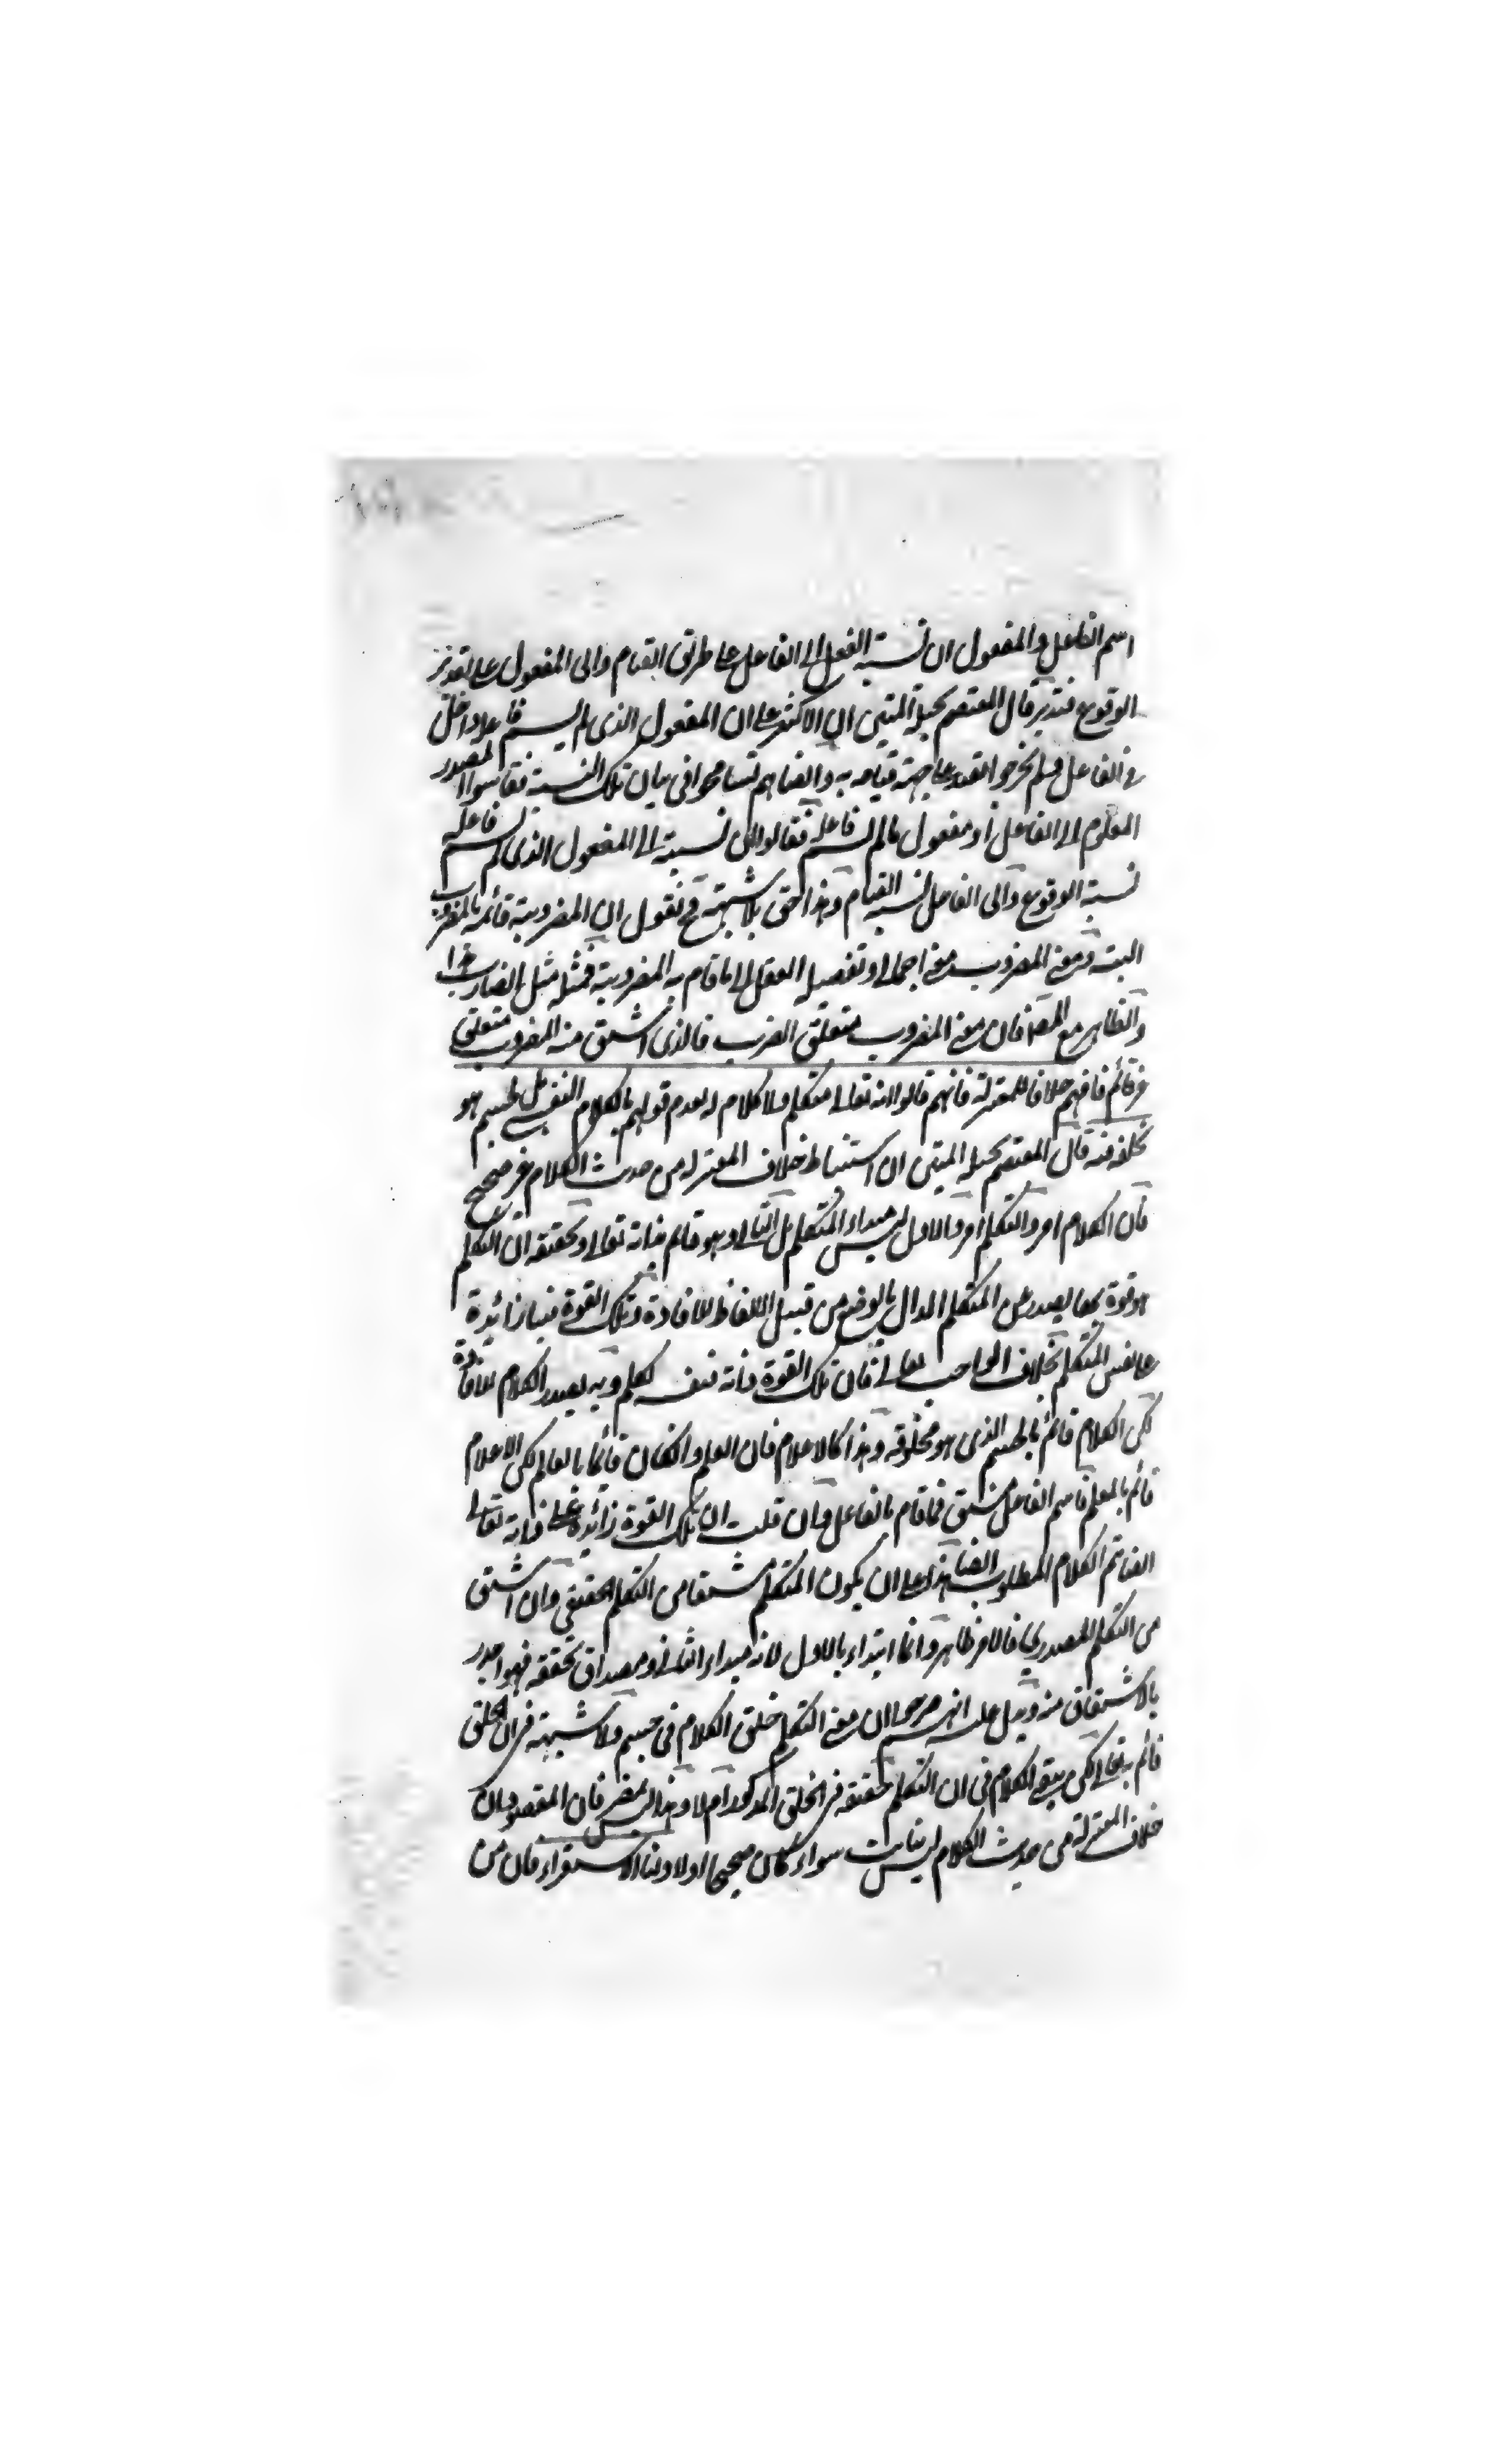 اسم الفاعل والمفعول ان نسبة الفعل الى الفاعل على طريق القيام والى المفعول على تقدير
الوقوع فتدبر قال المعتصم بحبله المتين ان الاكثر على ان المفعول الذى لم يسم فاعله داخل
فى الفاعل فلم يخرجوا بقيد على جهة قيامه به وايضا هم تسامحوا فى بيان تلك النسبة فقاسوا المصدر
المعلوم الى الفاعل او مفعول ما لم يسم فاعله فقالوا ان نسبته الى المفعول الذى لم يسم فاعله
نسبة الوقوع والى الفاعل نسبة القيام وهذا حق بلا شبهة فح نقول ان المضروبية قائمة بالمضروب
البتة ومعنى المضروب معنى اجمالى وتفصيله العقل الى ما قام به المضروبية فمثله مثل الضارب هذا
والظاهر مع المصـ فان معنى المضروب متعلق الضرب فالذى اشتق منه المضروب متعلق
غير قائم فافهم خلافا للمعتزلة فانهم قالوا انه تعالى متكلم ولا كلام له لعدم قولهم بالكلام النفسى بل لجسم هو
يخلقه فيه قال المعتصم بحبله المتين ان استنباط خلاف المعتزلة من حديث الكلام غير صحيح
فان الكلام امر والتكلم امر والاول ليس مبدء المتكلم بل الثانى وهو قائم بذاته تعالى وتحقيقه ان التكلم
هو قوة بها يصدر عن المتكلم الدال بالوضع من قبيل الالفاظ للافادة وتلك القوة فينا زائدة
على نفس المتكلم بخلاف الواجب تعالى فان تلك القوة ذاته فنفسه كعلم وبه يصدر الكلام للافادة
لكن الكلام قائم بالجسم الذى هو مخلوقه وهذا كالاعلام فان العلم وان كان قائما بالعالم لكن الاعلام
قائم بالمعلم فاسم الفاعل مشتق مما قام بالفاعل وان قلت ان تلك القوة زائدة على ذاته تعالى
ايضا تم الكلام المطلوب ايضا هذا على ان يكون المتكلم مشتقا من التكلم الحقيقى وان اشتق
من التكلم المصدرى فالامر ظاهر وانما ابتداء بالاول لانه مبداء الثانى ومصداق تحققه فهو اجدر
بالاشتقاق منه وقيل عليه انهم صرحوا ان معنى التكلم خلق الكلام فى جسم ولا شبهة فى ان الخلق
قائم به تعالى لكن يبقى الكلام فى ان التكلم حقيقة فى الخلق المذكور ام لا وهذا ليس بمضر فان المقصود ان
خلاف المعتزلة من حديث الكلام ليس بثابت سواء كان صحيحا او لا ولنا الاستقراء فان من